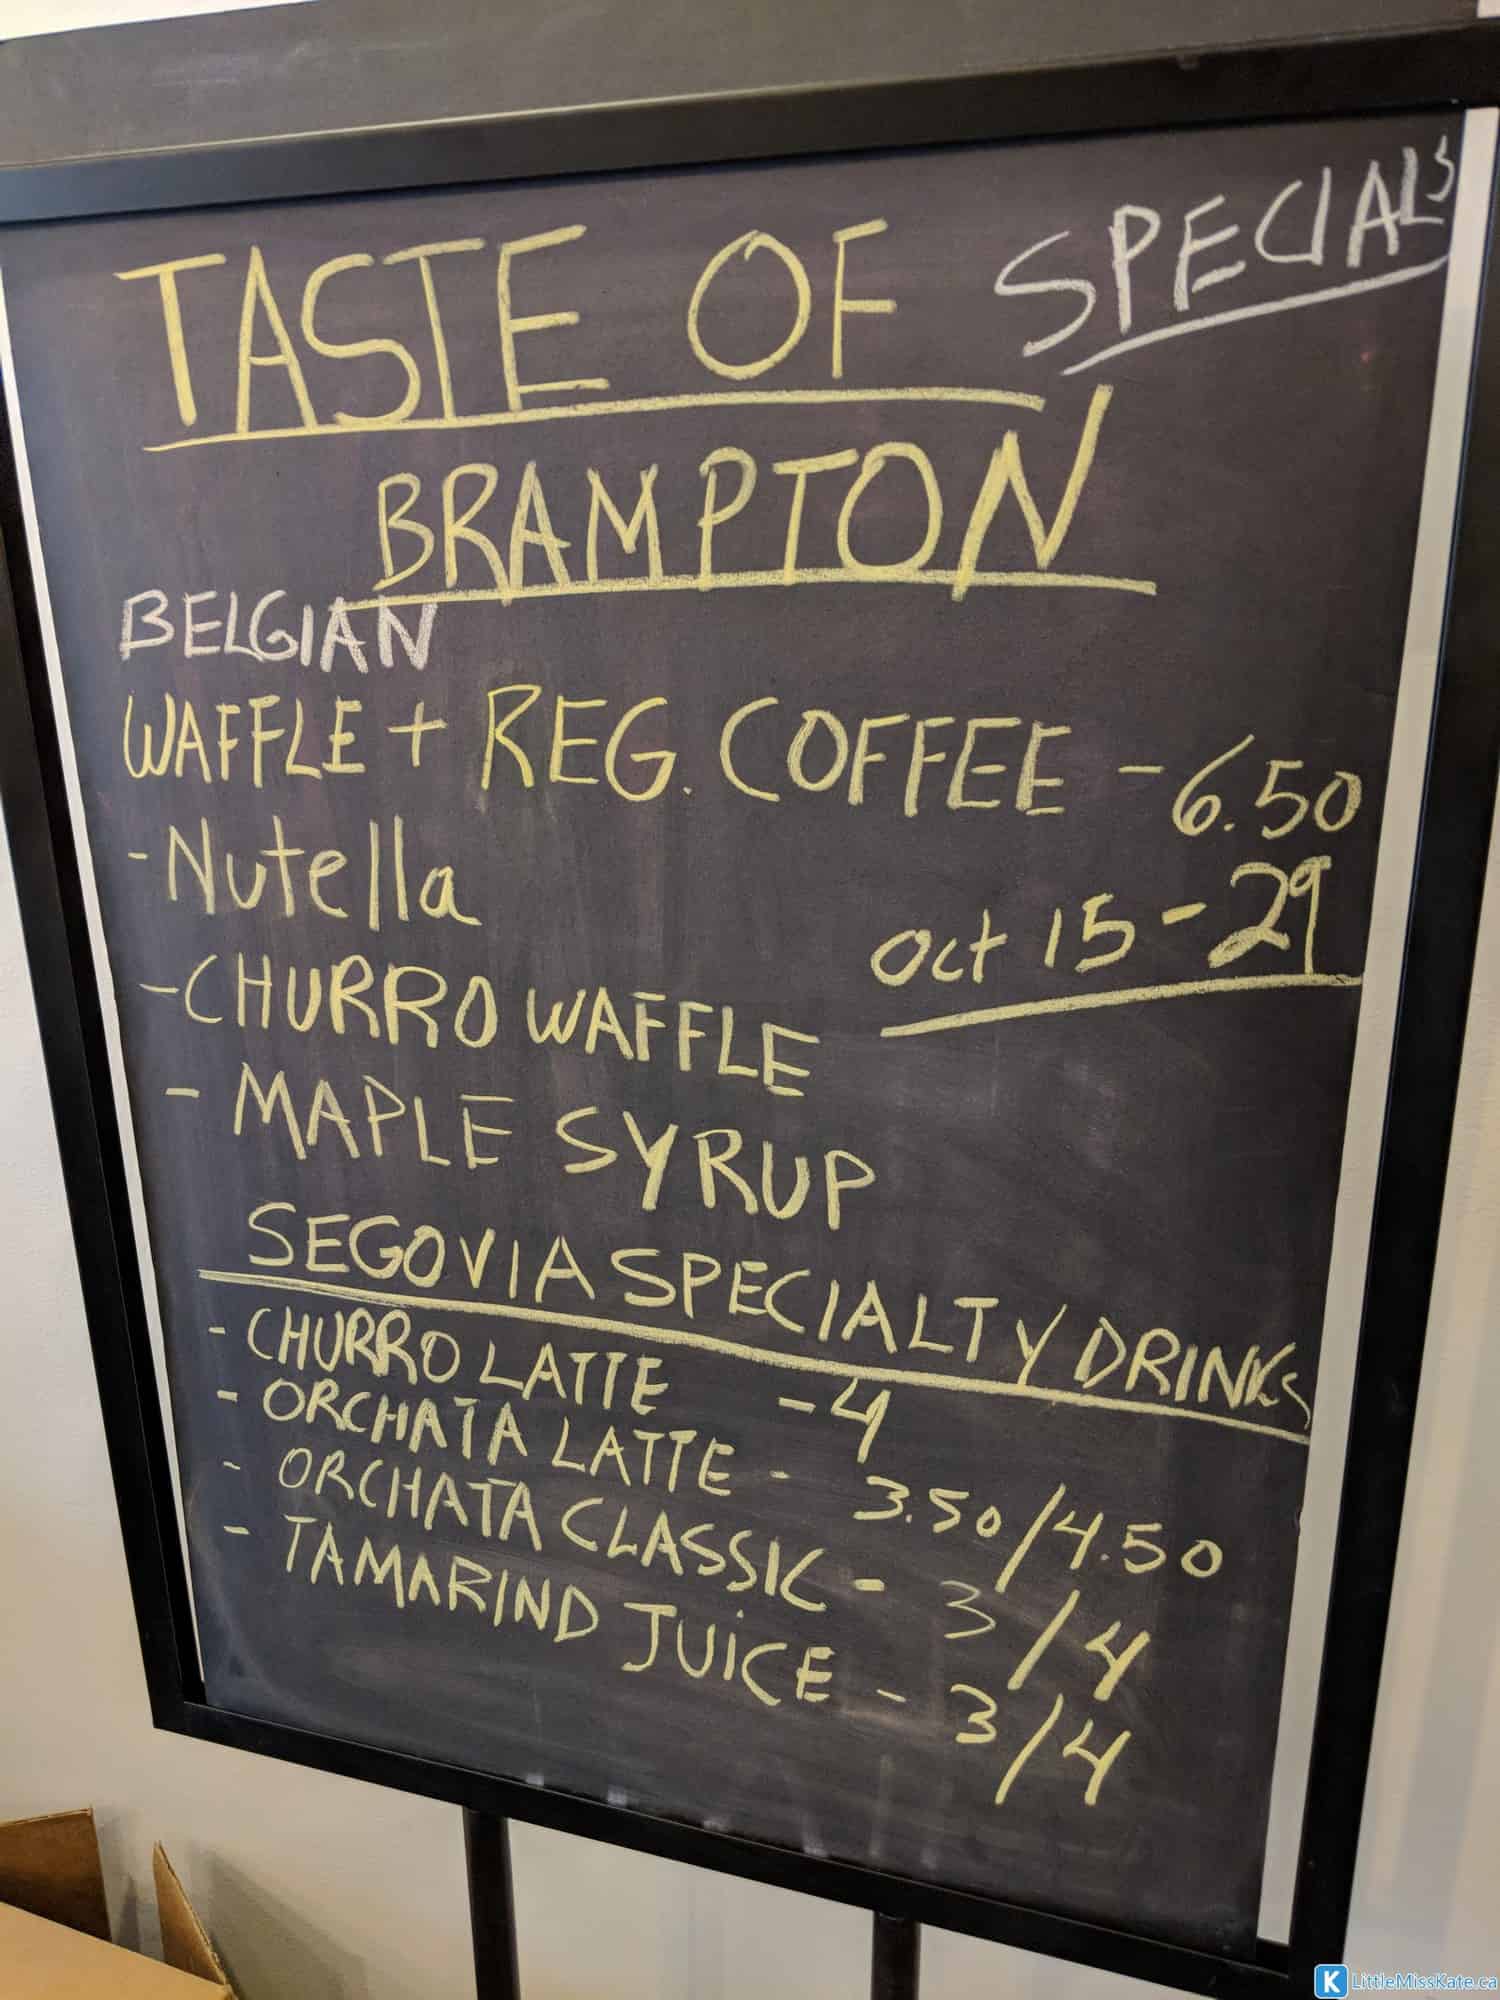 SPECIALS
TASTE OF
BRAMPTON
BELGIAN
WAFFLE + REG. COFFEE - 6.50
- Nutella
Oct 15 - 29
- CHURRO WAFFLE
- MAPLE SYRUP
SEGOVIA SPECIALTY DRINKS
- CHURRO LATTE - 4
- ORCHATA LATTE - 3.50/4.50
- ORCHATA CLASSIC - 3/4
- TAMARIND JUICE - 3/4
K LittleMissKate.ca